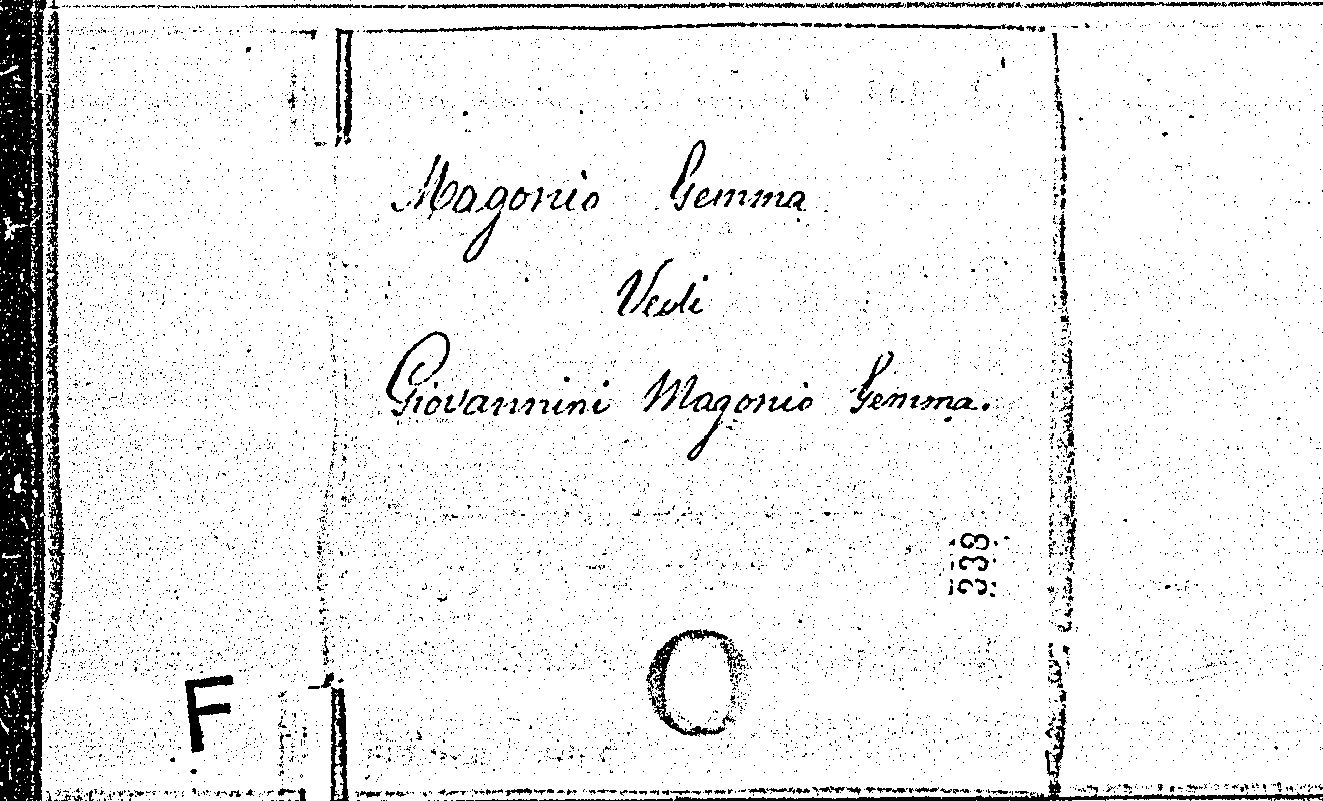 Magonio Gemma
Vedi
Giovannini Magonio Gemma.
338
O
F